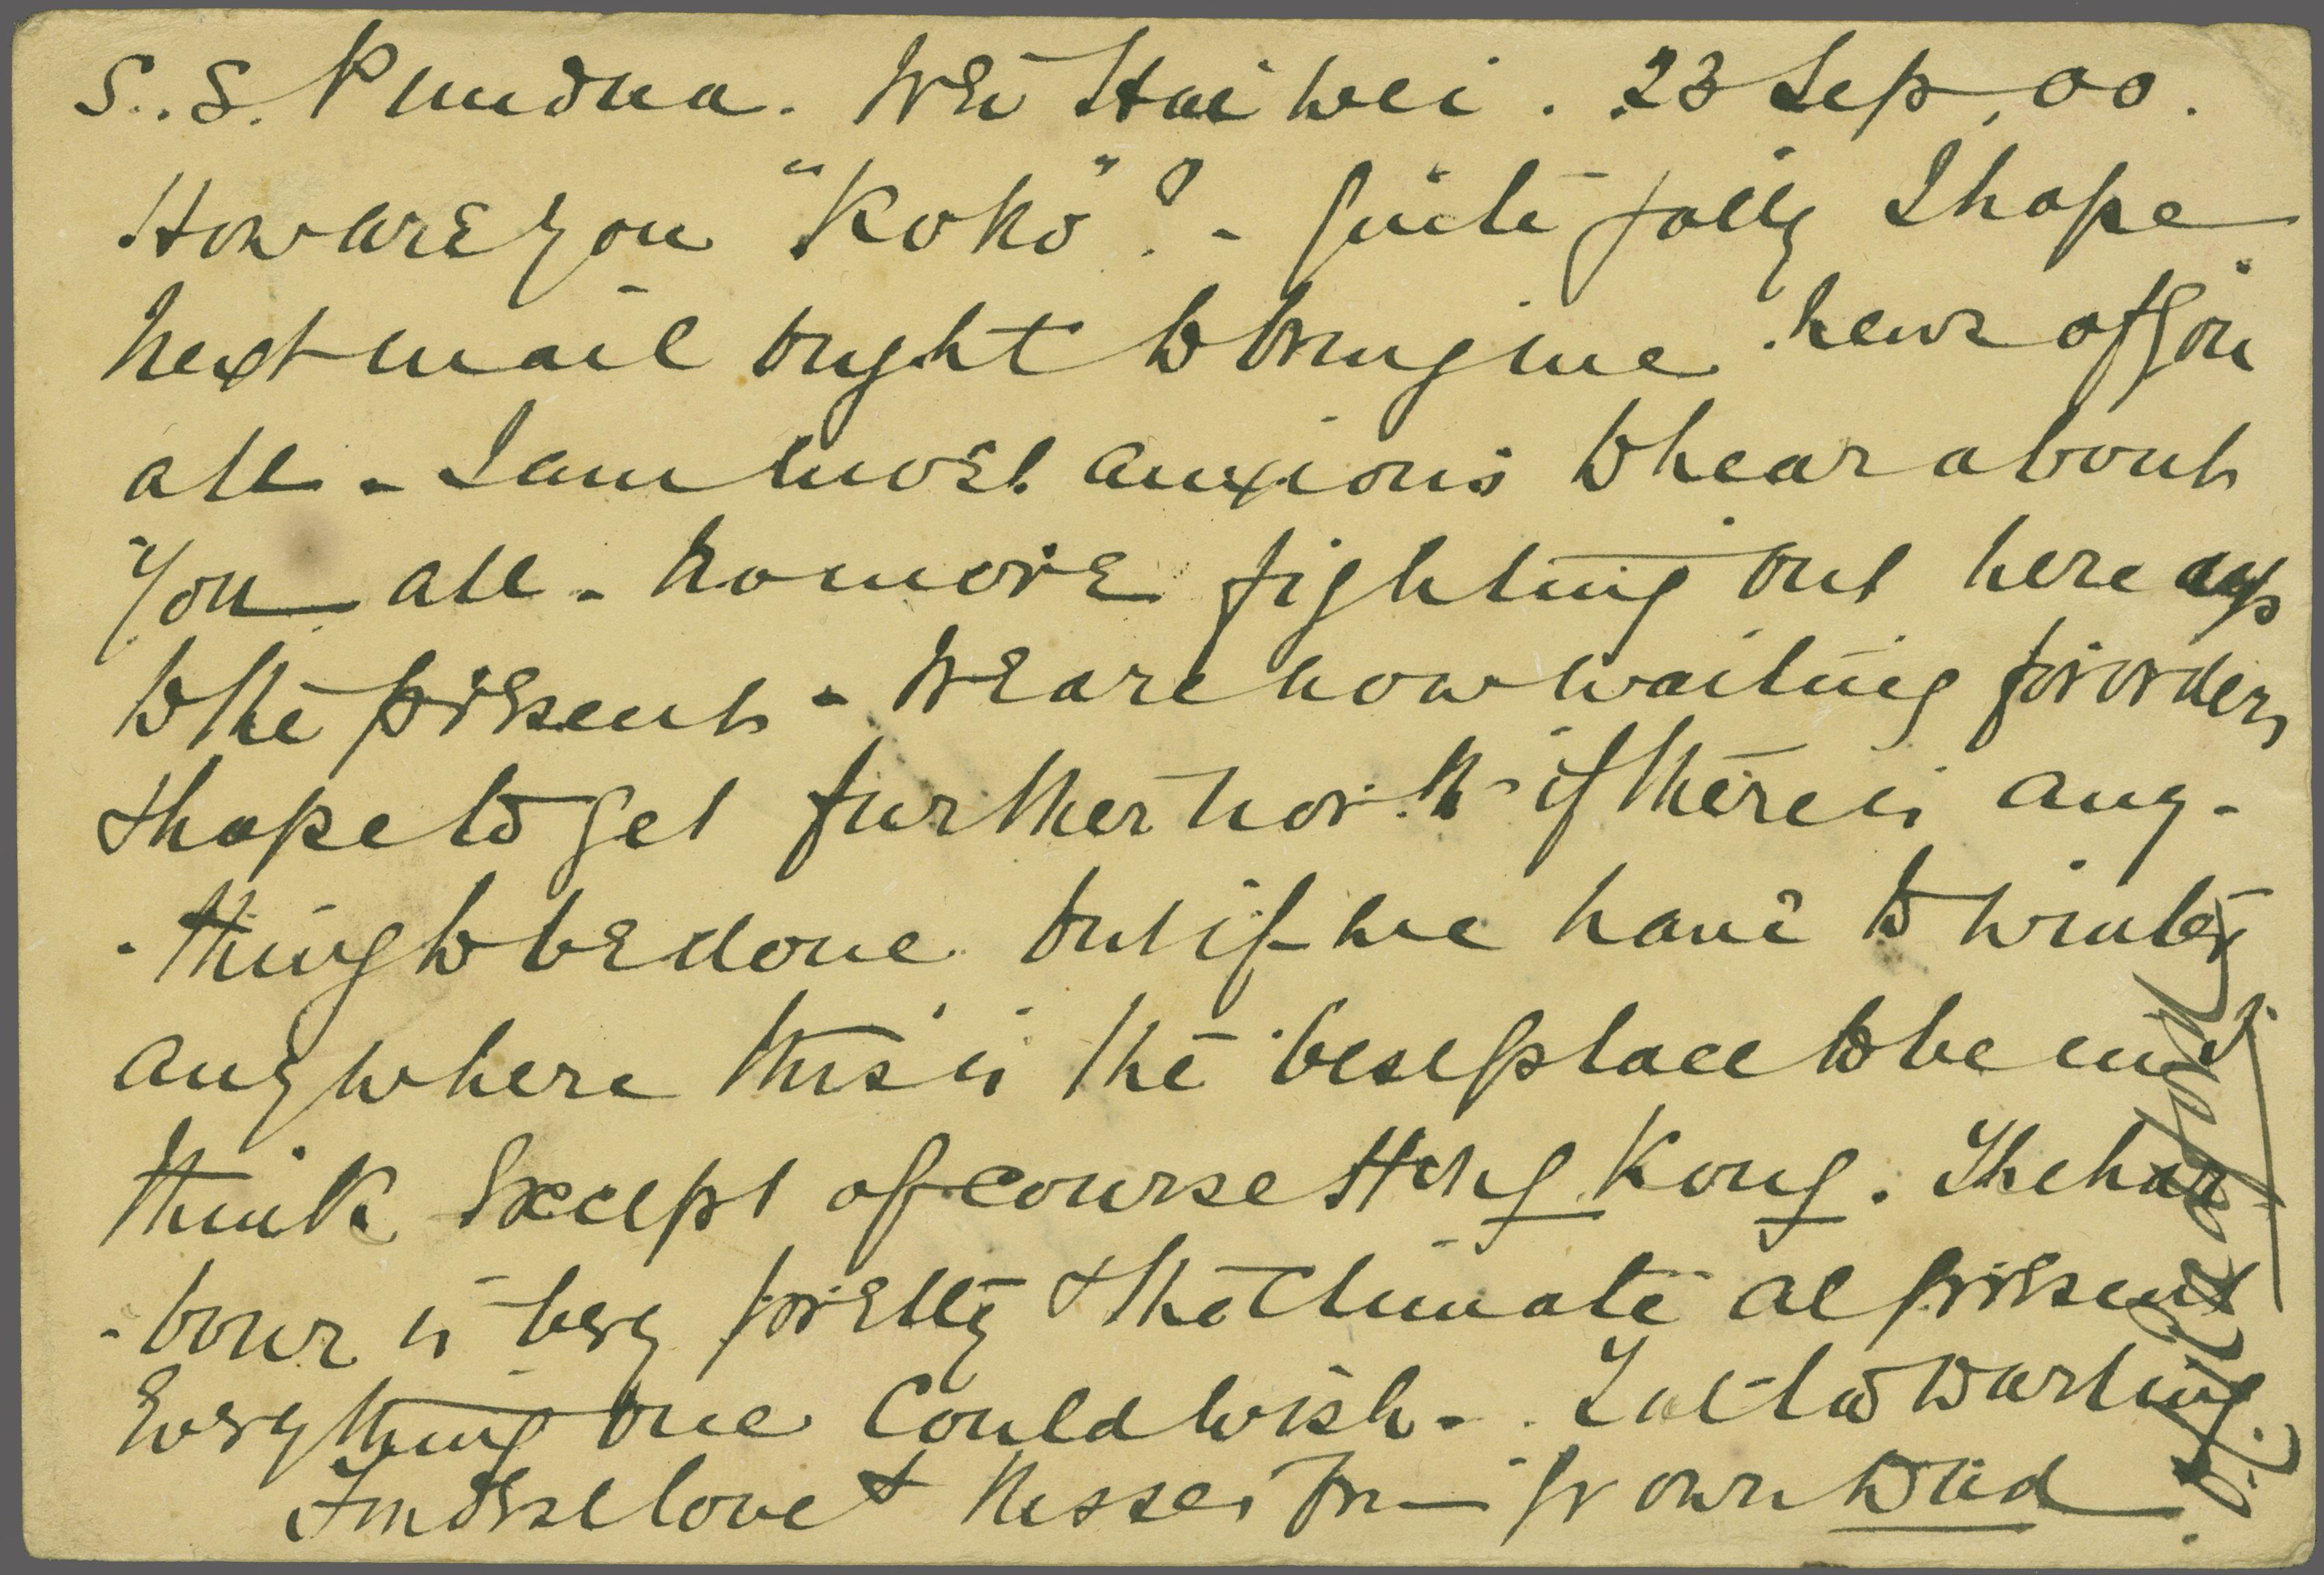 S.S. Pundua. Wei Hai Wei. 23 Sep. 00.
How are you "Koko"? - Quite jolly I hope
Next mail ought to bring me news of you
all - I am most anxious to hear about
you all - No more fighting out here up
to the present - We are now waiting for orders
& hope to get further north if there is any-
-thing to be done but if we have to winter
anywhere this is the best place to be in I
think except of course Hong Kong. The har
-bour is very pretty & the climate at present
Everything one could wish - Ta ta darling
Fondest love & kisses from yr own Dad